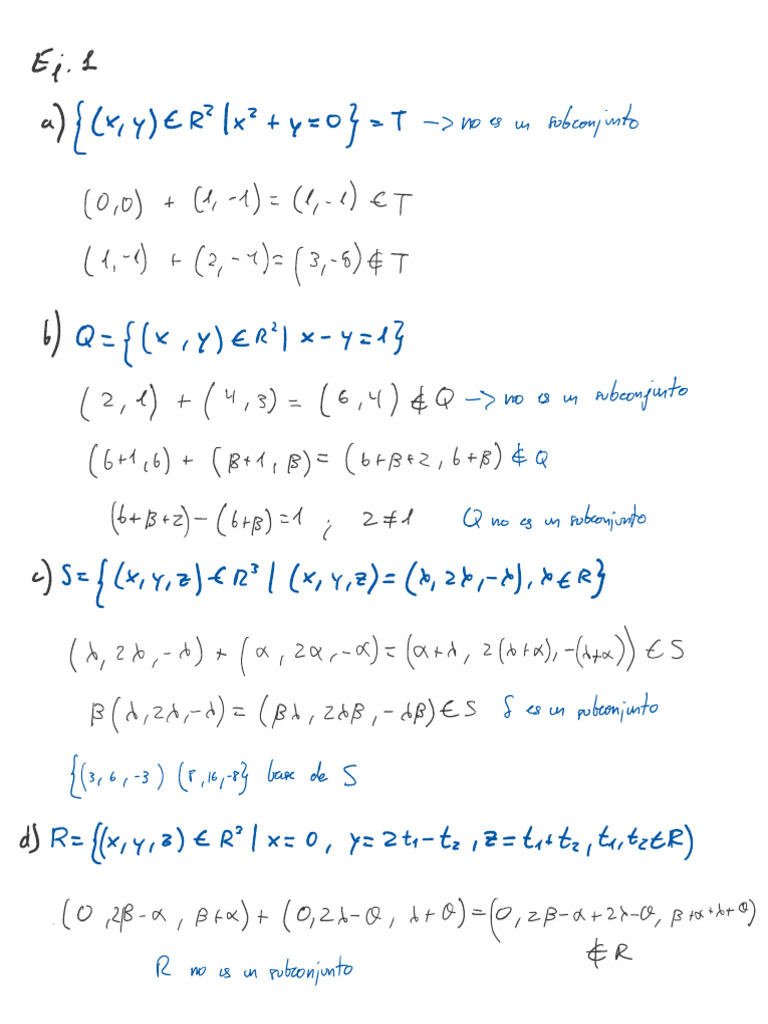 Ej. 1
a) {(x, y) ∈ R² | x² + y = 0} = T -> no es un subconjunto
(0,0) + (1, -1) = (1, -1) ∈ T
(1, -1) + (2, -4) = (3, -5) ∉ T
b) Q = {(x, y) ∈ R² | x - y = 1}
(2, 1) + (4, 3) = (6, 4) ∉ Q -> no es un subconjunto
(6+1, 6) + (β+1, β) = (6+β+2, 6+β) ∉ Q
(6+β+2) - (6+β) = 1 ; 2 ≠ 1 Q no es un subconjunto
c) S = {(x, y, z) ∈ R³ | (x, y, z) = (λ, 2λ, -λ), λ ∈ R}
(λ, 2λ, -λ) + (α, 2α, -α) = (α+λ, 2(λ+α), -(λ+α)) ∈ S
β(λ, 2λ, -λ) = (βλ, 2λβ, -λβ) ∈ S S es un subconjunto
{(3, 6, -3) (8, 16, -8} base de S
d) R = {(x, y, z) ∈ R³ | x = 0, y = 2t₁ - t₂, z = t₁ + t₂, t₁, t₂ ∈ R)
(0, 2β-α, β+α) + (0, 2λ-θ, λ+θ) = (0, 2β-α+2λ-θ, β+α+λ+θ)
∉ R
R no es un subconjunto